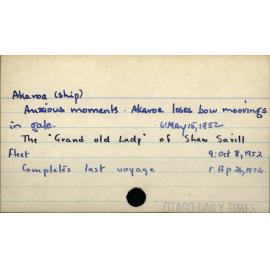 Akaroa (ship)
Anxious moments. Akaroa loses bow moorings
in gale. 6: May 15, 1952
The "Grand old Lady" of Shaw Savill
Fleet 9: Oct 8, 1952
Completes last voyage r. Ap 26, 1954
OTAGO DAILY TIMES